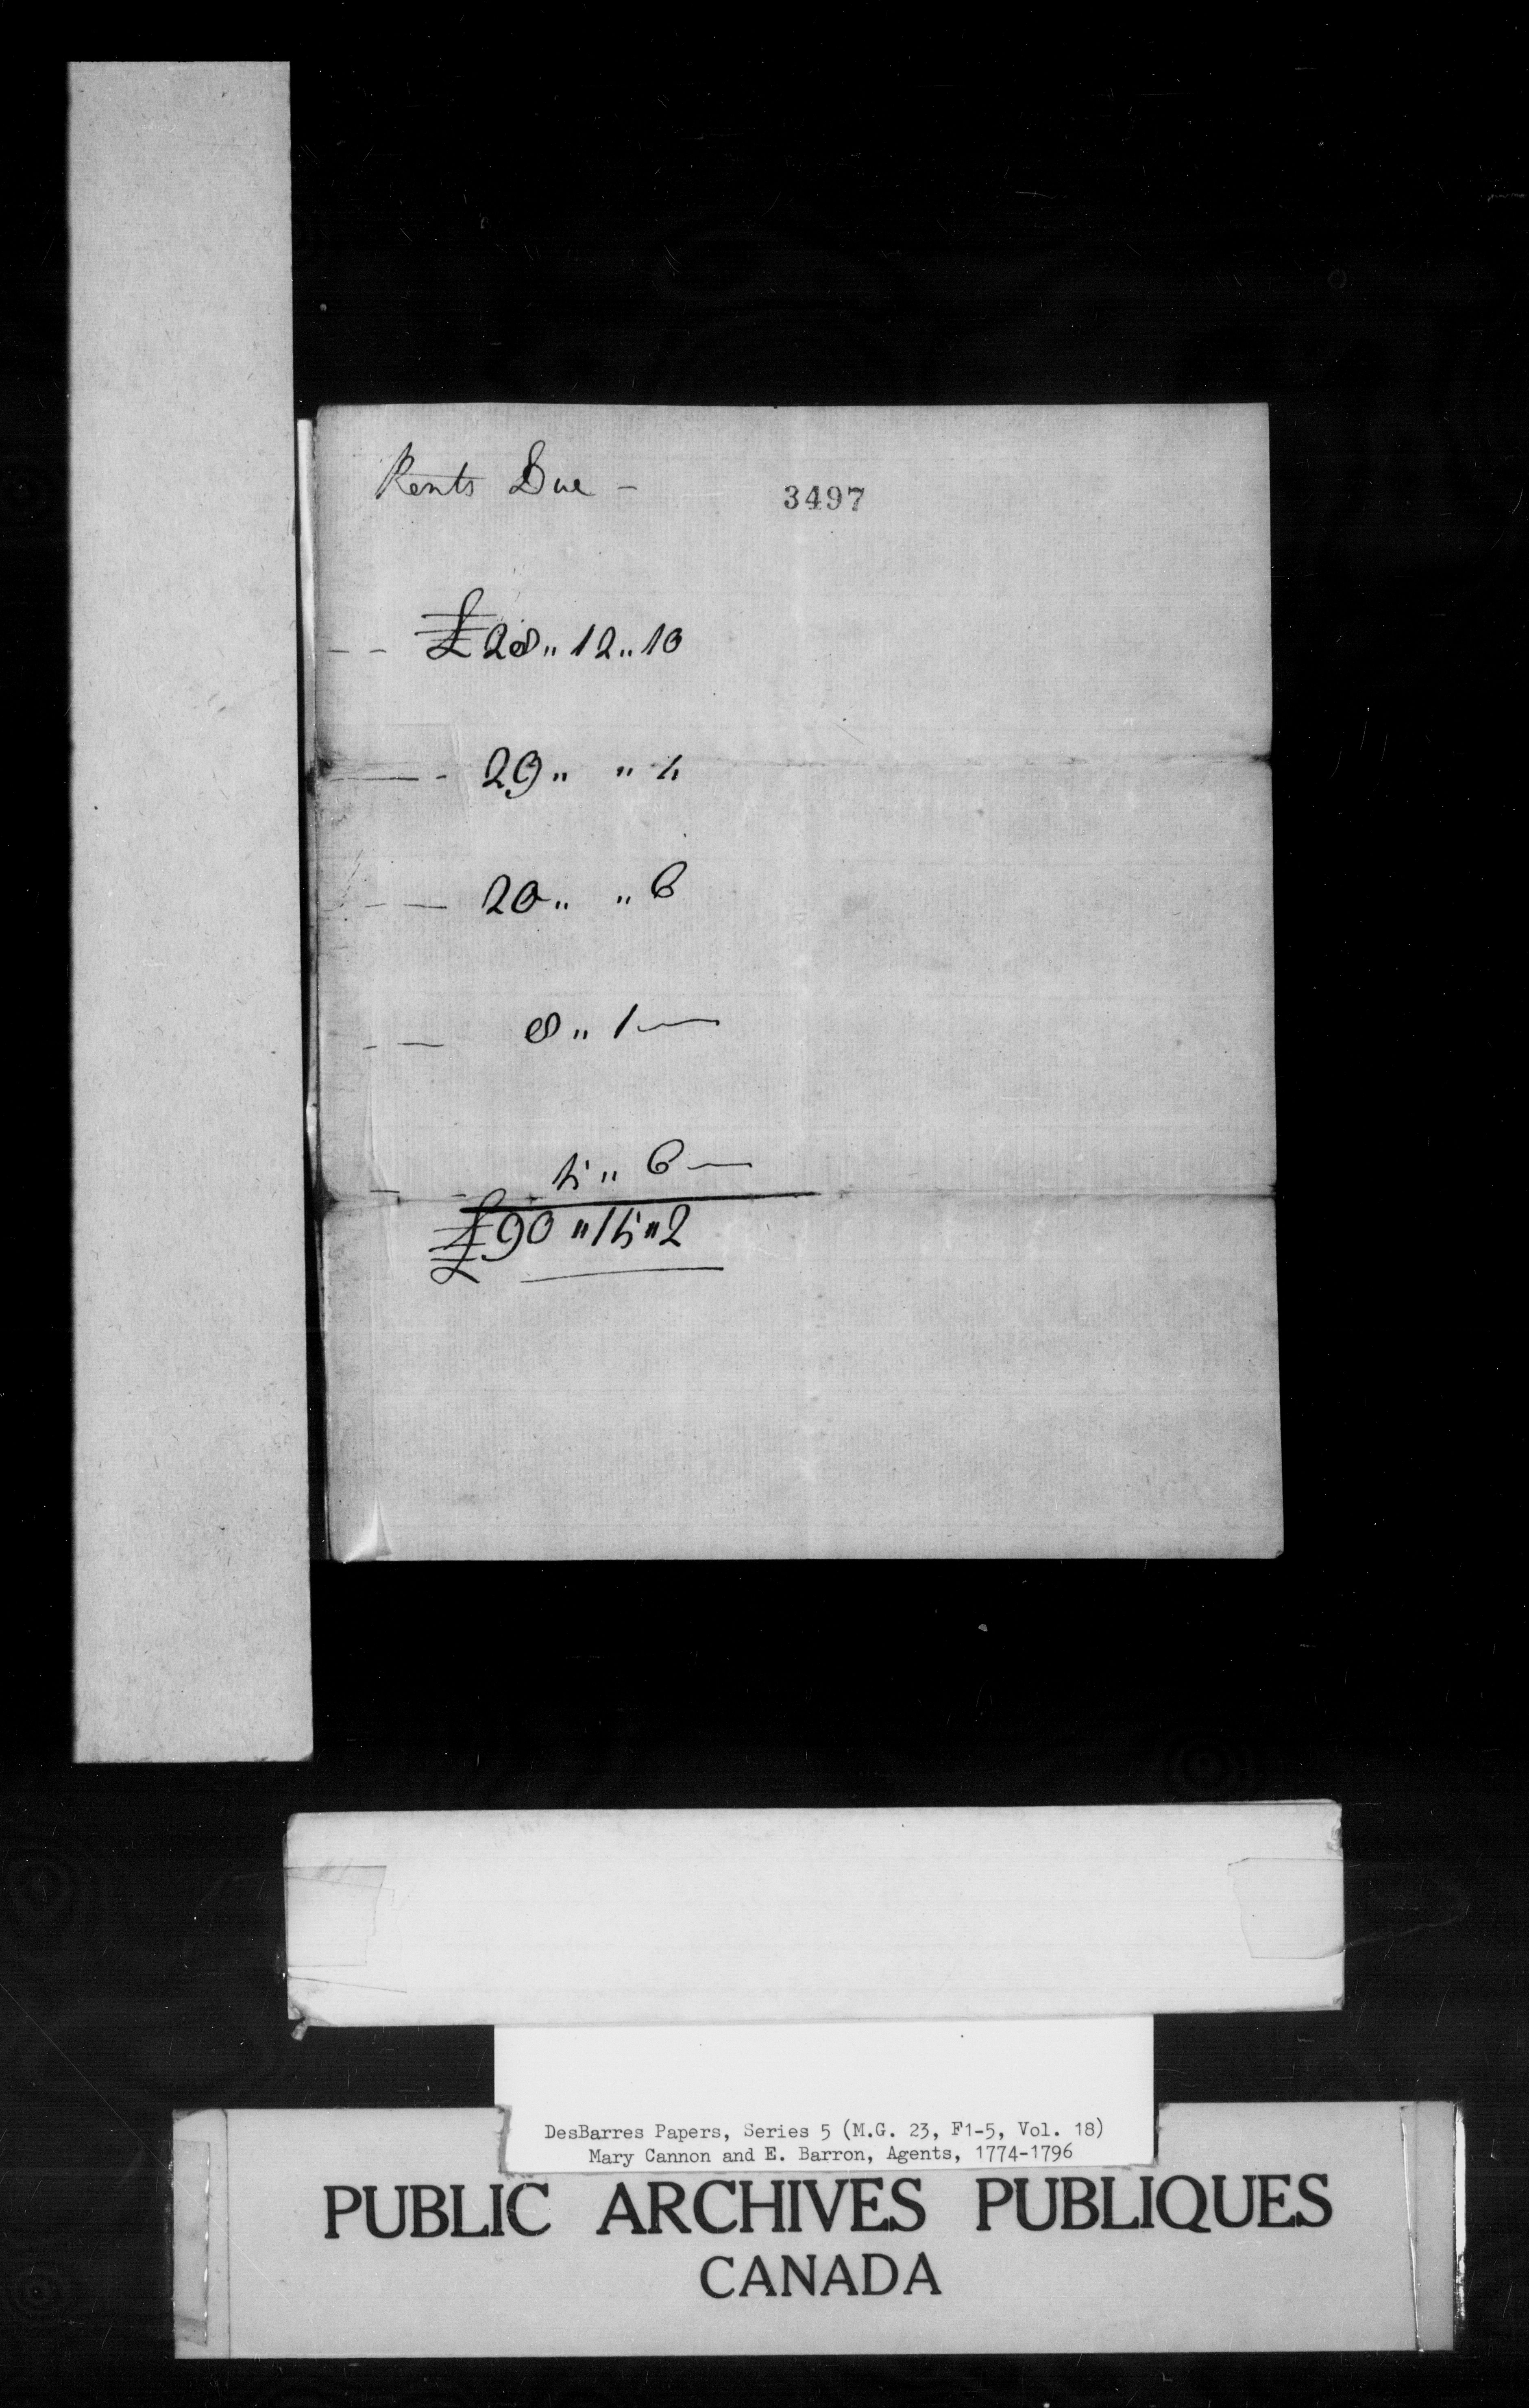 Rents Due -
3497
- - £28 " 12 " 10
—— - 29 " " 4
- - — 20 " " 6
- — 8 " 1 —
- - 4 " 6 —
£90 " 14 " 2
DesBarres Papers, Series 5 (M.G. 23, F1-5, Vol. 18)
Mary Cannon and E. Barron, Agents, 1774-1796
PUBLIC ARCHIVES PUBLIQUES
CANADA